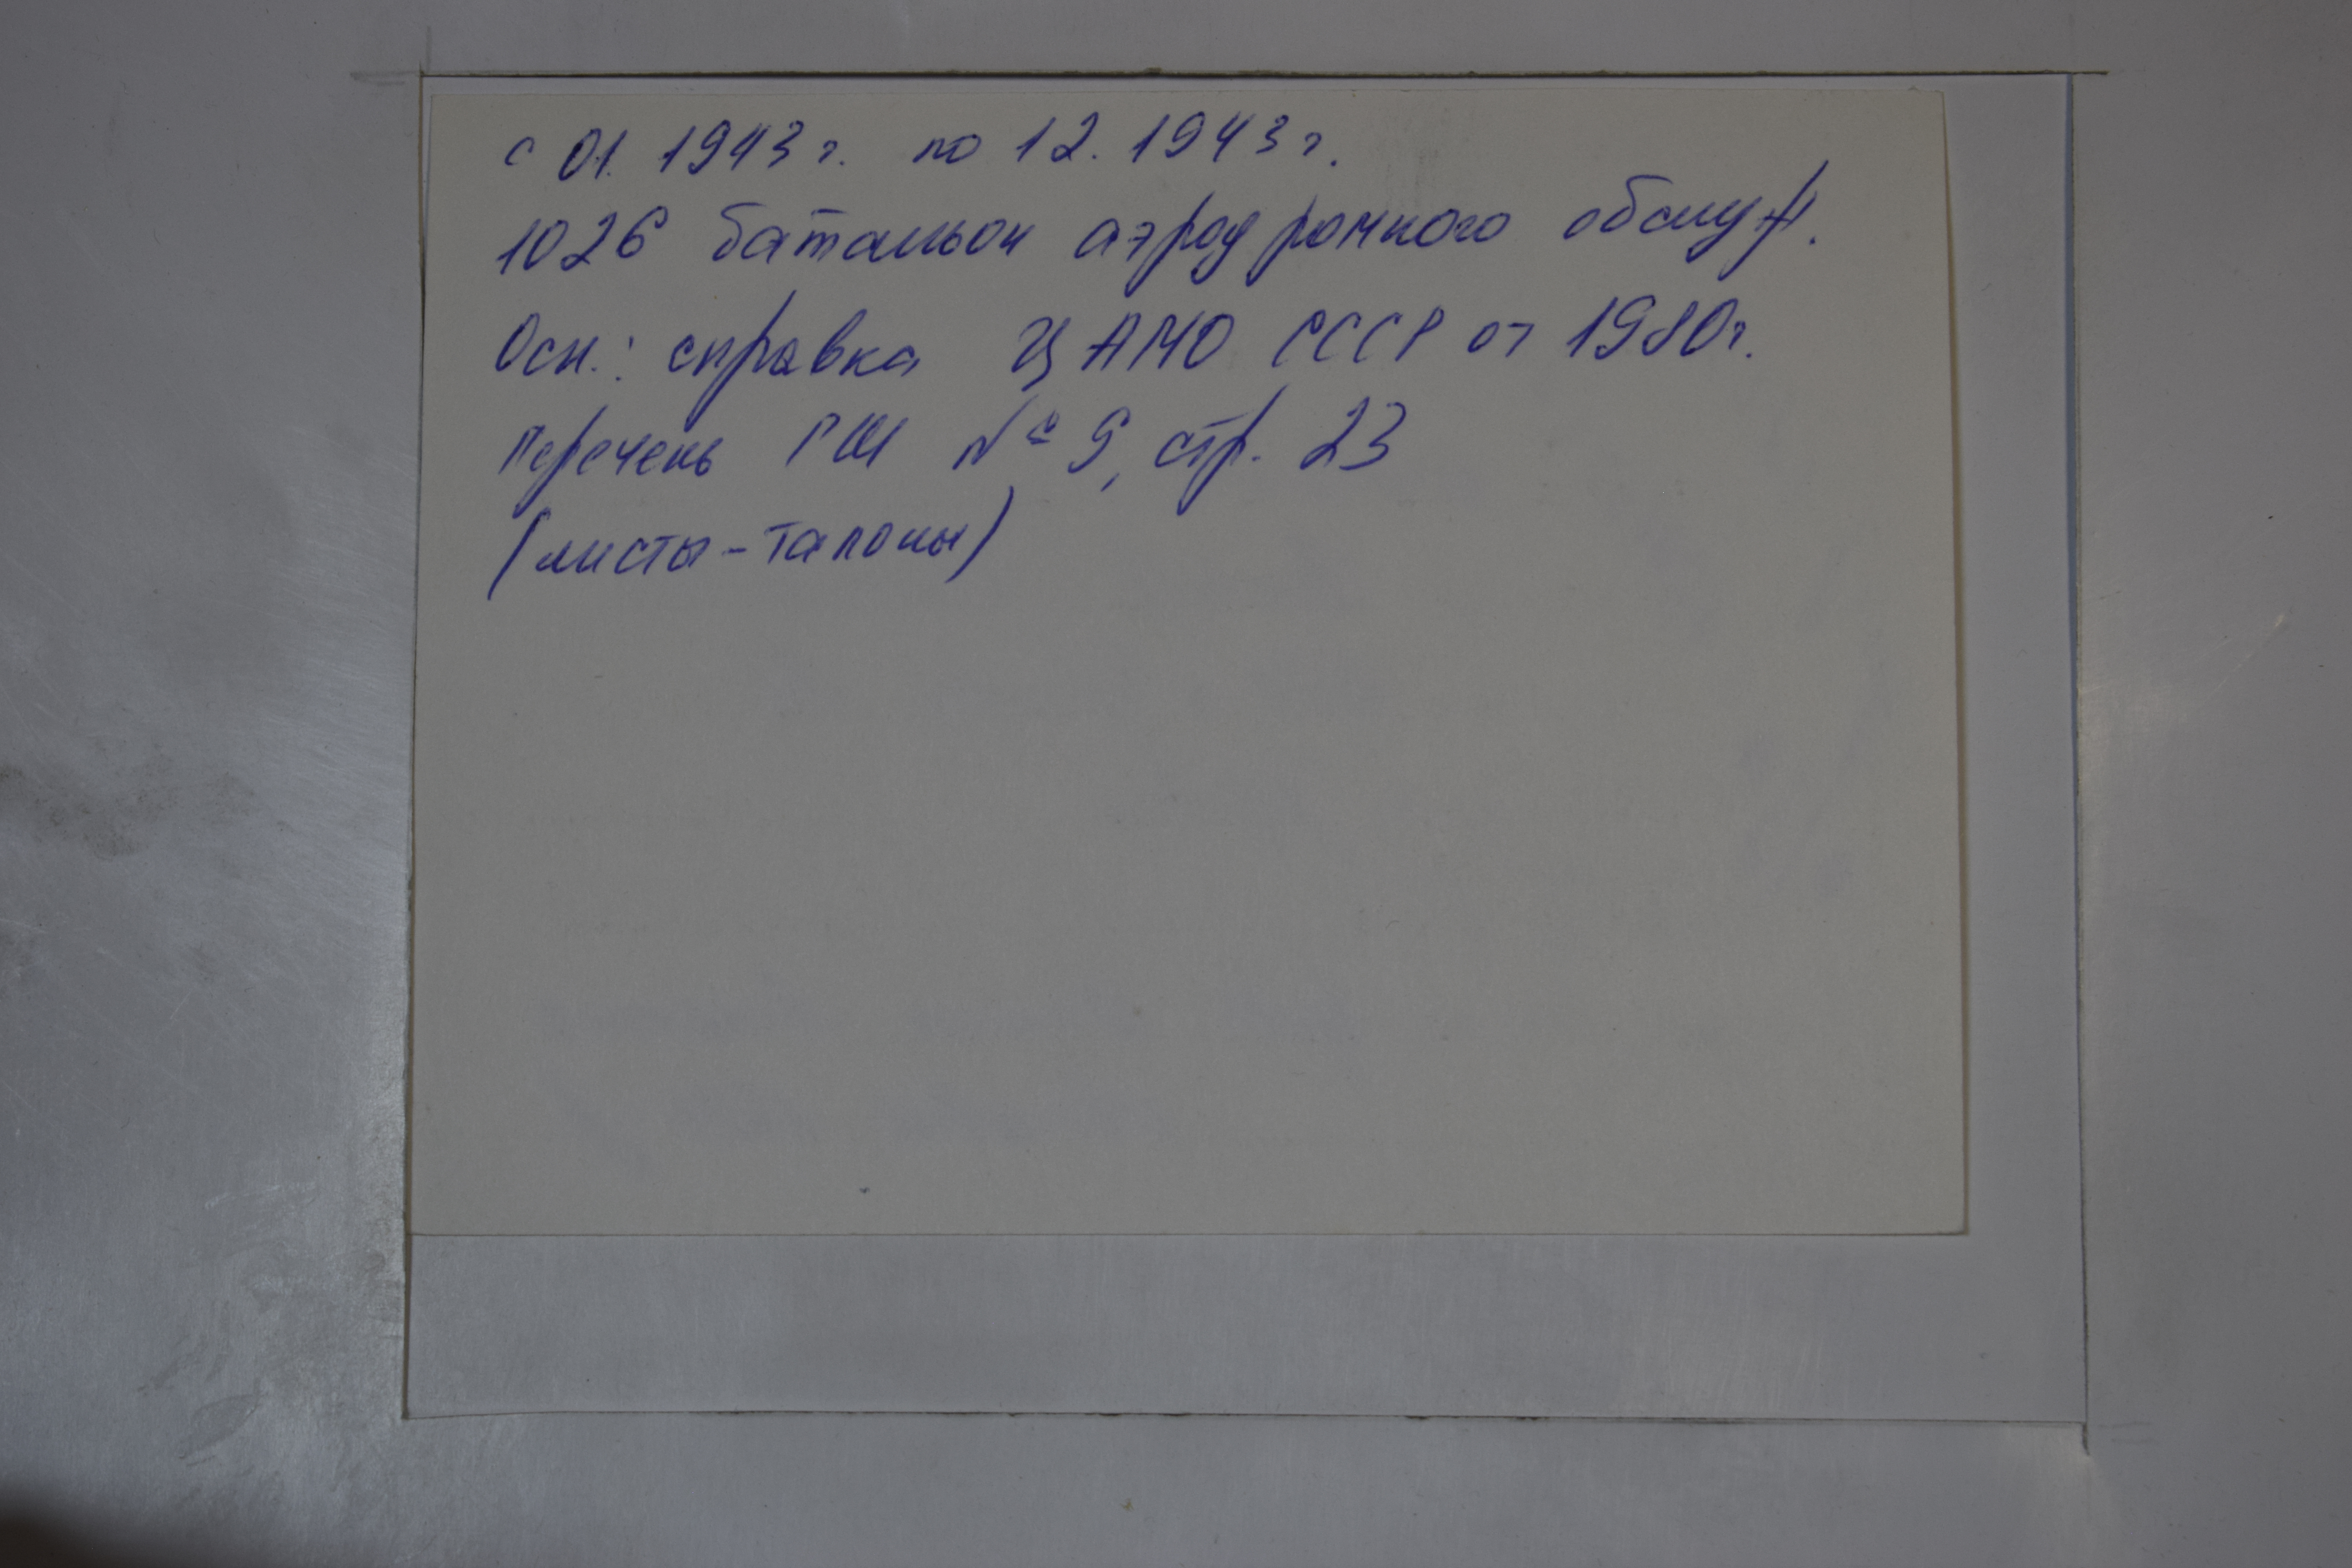 с 01. 1943 г. по 12. 1943 г.
1026 батальон аэродромного обслуж.
Осн.: справка ЦАМО СССР от 1980г.
Перечень ГШ № 9, стр. 23
(листы-талоны)